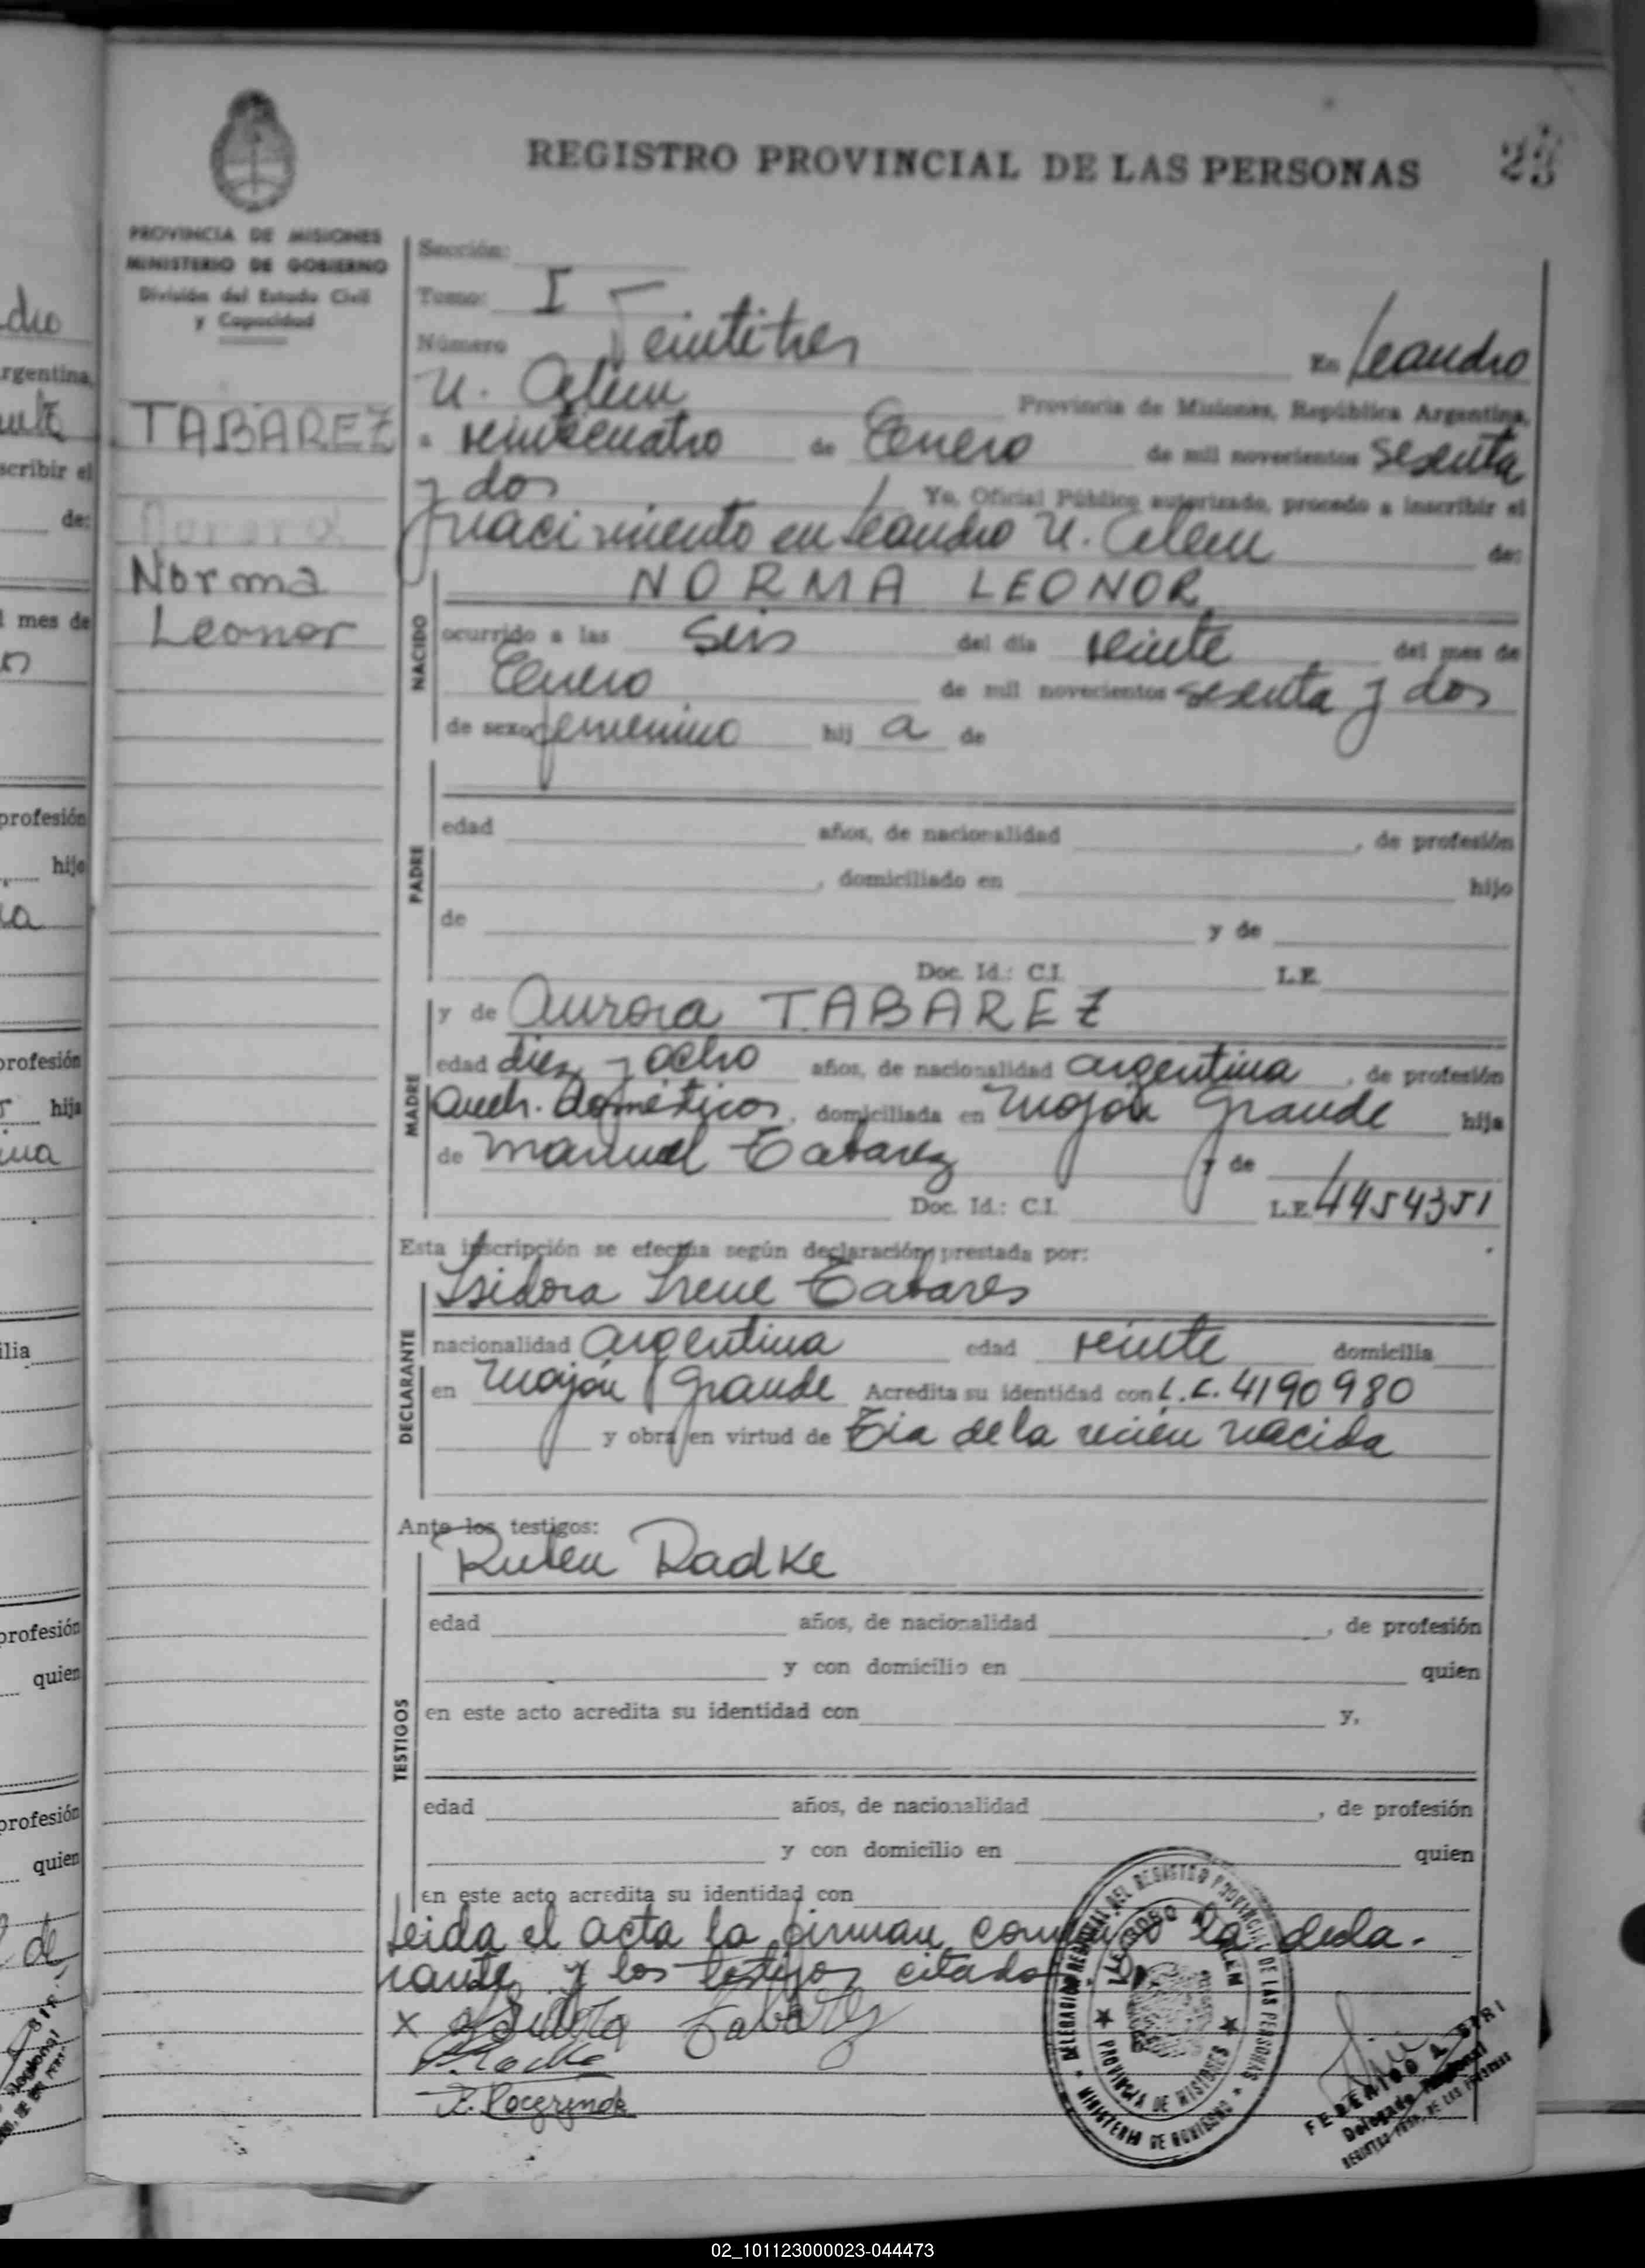 REGISTRO PROVINCIAL DE LAS PERSONAS
23
PROVINCIA DE MISIONES
MINISTERIO DE GOBIERNO
División del Estado Civil
y Capacidad
TABAREZ
Norma
Leonor
Sección:
Tomo: I
Número Veintitres En Leandro
N. Alem Provincia de Misiones, República Argentina,
a veinticuatro de Enero de mil novecientos sesenta
y dos Yo, Oficial Público autorizado, procedo a inscribir el
nacimiento en Leandro N. Alem de:
NACIDO
NORMA LEONOR
ocurrido a las seis del día veinte del mes de
Enero de mil novecientos sesenta y dos
de sexo femenino hij a de
PADRE
edad años, de nacionalidad , de profesión
, domiciliado en hijo
de y de
Doc. Id.: C.I. L.E.
MADRE
y de Aurora TABAREZ
edad diez y ocho años, de nacionalidad argentina , de profesión
Queh. Domésticos, domiciliada en Mojón Grande hija
de Manuel Tabarez y de
Doc. Id.: C.I. L.E. 4454351
Esta inscripción se efectúa según declaración prestada por:
DECLARANTE
Isidora Irene Tabares
nacionalidad argentina edad veinte domicilia
en Mojón Grande Acredita su identidad con L.C. 4190980
y obra en virtud de Tia de la recien nacida
Ante los testigos:
TESTIGOS
Ruben Radke
edad años, de nacionalidad , de profesión
y con domicilio en quien
en este acto acredita su identidad con y,
edad años, de nacionalidad , de profesión
y con domicilio en quien
en este acto acredita su identidad con
Leida el acta la firman conmigo la decla-
rante y los testigos citados
x Isidora Tabarez
Radke
DELEGACIÓN REGIONAL DEL REGISTRO PROVINCIAL DE LAS PERSONAS
LEANDRO N. ALEM
PROVINCIA DE MISIONES
MINISTERIO DE GOBIERNO
FEDERICO A.
Delegado Regional
REGISTRO PROV. DE LAS PERSONAS
02_101123000023-044473